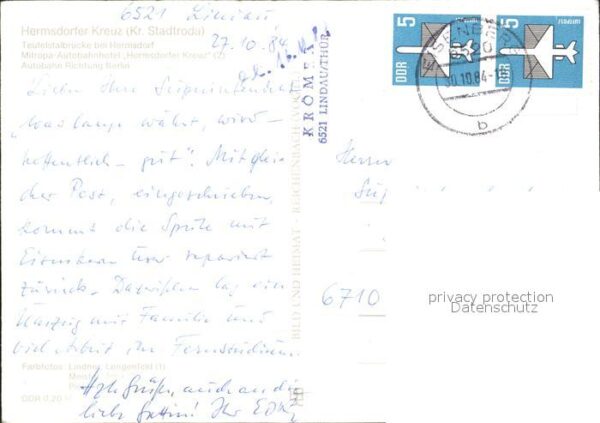 6521 Lindau
Hermsdorfer Kreuz (Kr. Stadtroda)
27.10.84
Teufelstalbrücke bei Hermsdorf
Mitropa-Autobahnhotel „Hermsdorfer Kreuz" (2)
Autobahn Richtung Berlin
Lieber Herr Superintendent
„Was lange währt, wird
hoffentlich gut". Mit gleicher
Post, eingeschrieben,
kommt die Spule mit
repariert
zurück. Dazwischen lag ein
Umzug mit Familie und
viel Arbeit im Fernstudium.
Farbfotos: Lindner, Lengenfeld (1)
DDR 0,20
Grüße, auch an die
liebe Gattin! Ihr
BILD UND HEIMAT · REICHENBACH (VOGTL)
KRÖMER
6521 LINDAU/THÜR
5
DDR
5
DDR
LUFTPOST
EISENBERG
30.10.84
b
Herrn
6710
privacy protection
Datenschutz